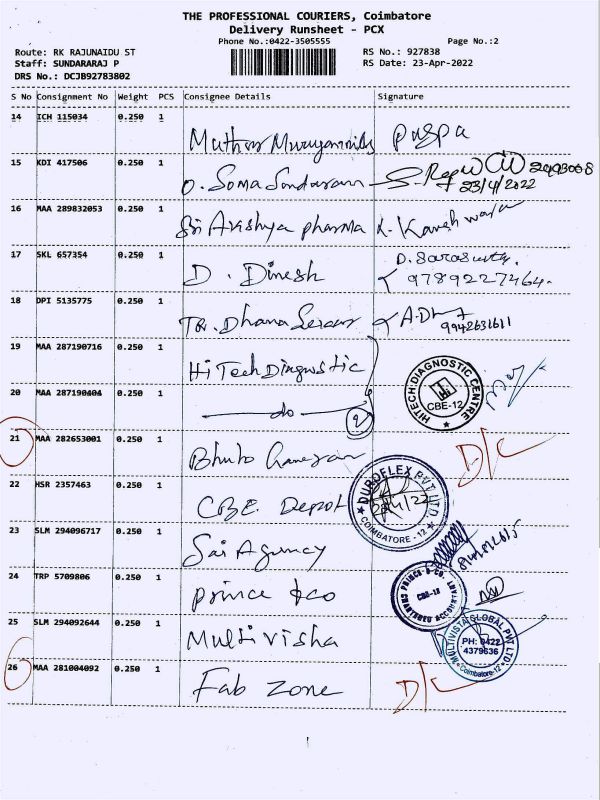 THE PROFESSIONAL COURIERS, Coimbatore
Delivery Runsheet - PCX
Phone No.:0422-3505555 Page No.:2
Route: RK RAJUNAIDU ST RS No.: 927838
Staff: SUNDARARAJ P RS Date: 23-Apr-2022
DRS No.: DCJB92783802
S No Consignment No Weight PCS Consignee Details Signature
14 ICH 115034 0.250 1
puspa
15 KDI 417506 0.250 1
O. Soma Sundaram
23/4/2022
16 MAA 289832053 0.250 1
Sri Arishya pharma
17 SKL 657354 0.250 1
D. Dinesh D. Saraswathy.
9789227464.
18 DPI 5135775 0.250 1
9942631611
19 MAA 287190716 0.250 1
Hi Tech Diagnostic
HITECH DIAGNOSTIC CENTRE
CBE-12
20 MAA 287190404 0.250 1
do
2
21 MAA 282653001 0.250 1
D/C
22 HSR 2357463 0.250 1
CBE Depot
DUROFLEX PVT LTD
COIMBATORE - 12
23 SLM 294096717 0.250 1
Sai Agency
24 TRP 5709806 0.250 1
Prince & co
PRINCE & CO.
CBE-12
CHARTERED ACCOUNTANT
25 SLM 294092644 0.250 1
Multi visha
MULTIVISTA GLOBAL PVT LTD
PH: 0422
4379636
Coimbatore-12
26 MAA 281004092 0.250 1
Fab zone D/C